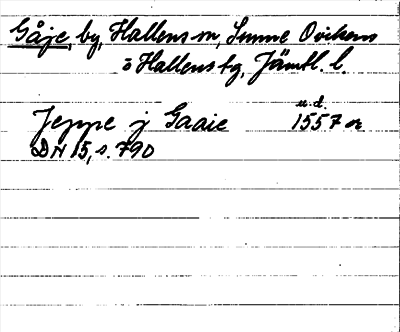 Gåje, by, Hallens sn, Sunne Ovikens
o Hallens tg, Jämtl. l.
u.d.
Jeppe j Gaaie 1557 or
DN 15, s. 790